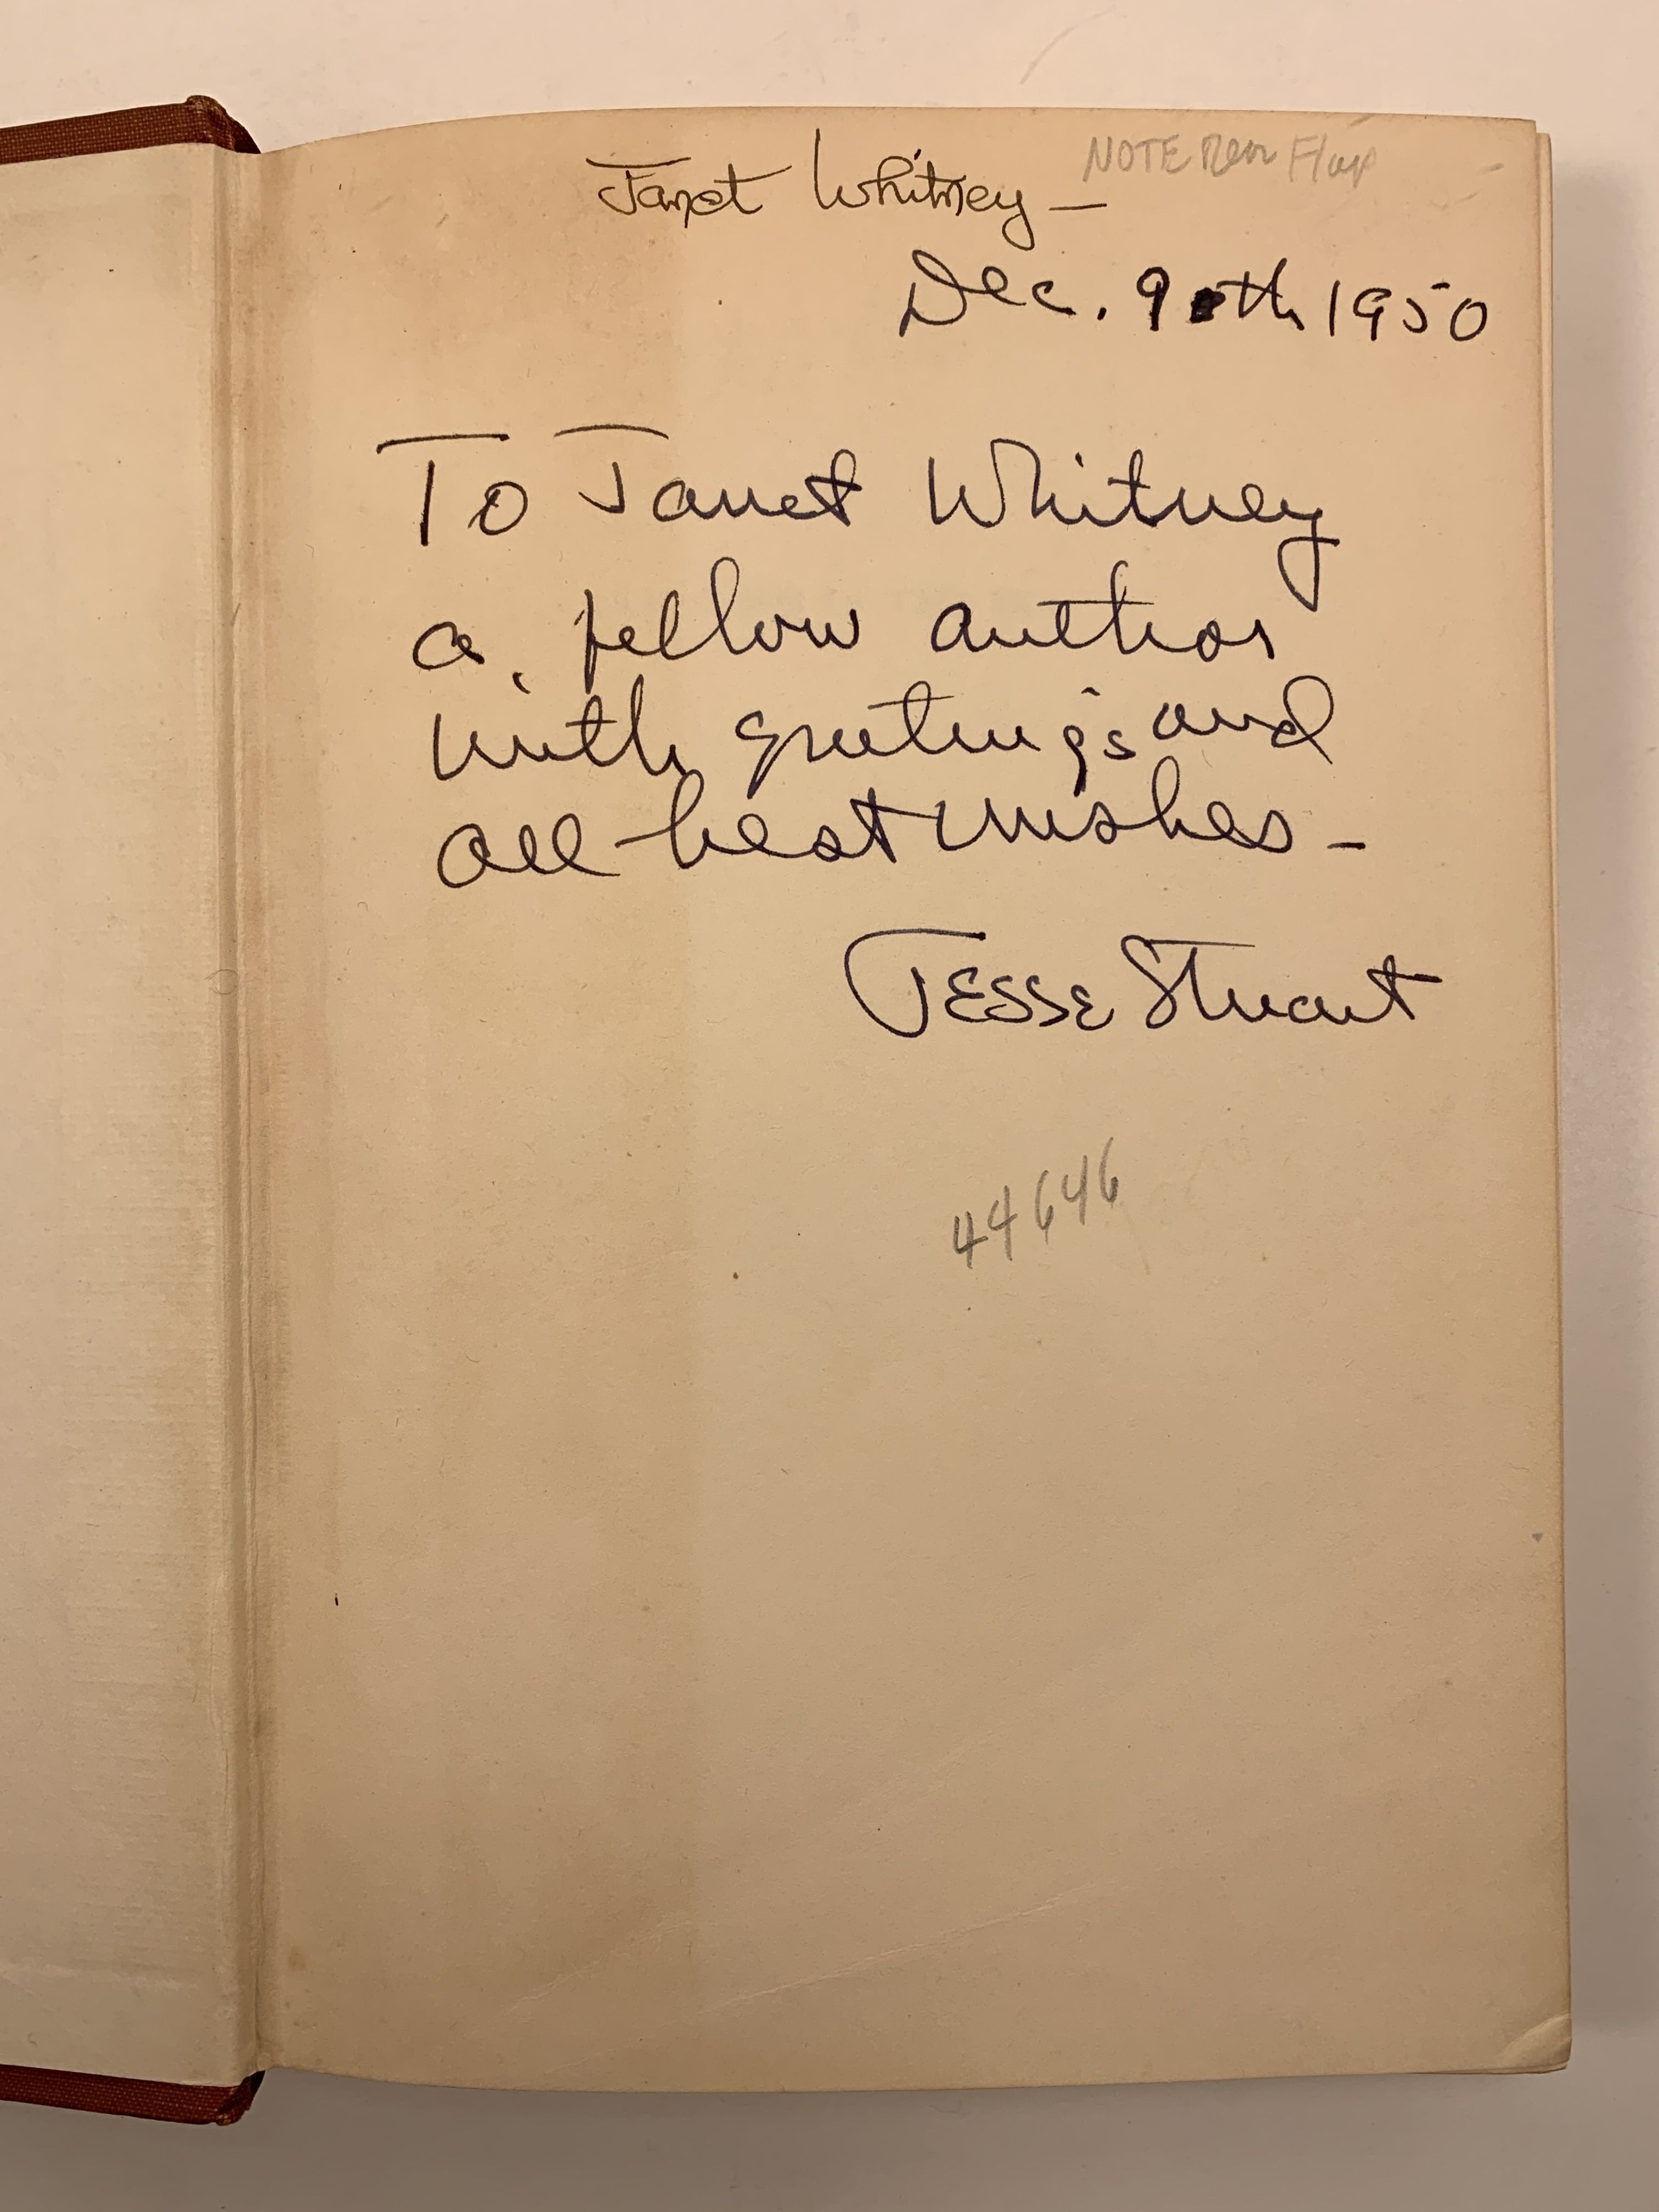 Janet Whitney —
NOTE Rear Flap
Dec. 9th 1950
To Janet Whitney
a fellow author
with greetings and
all best wishes —
Jesse Stuart
44646